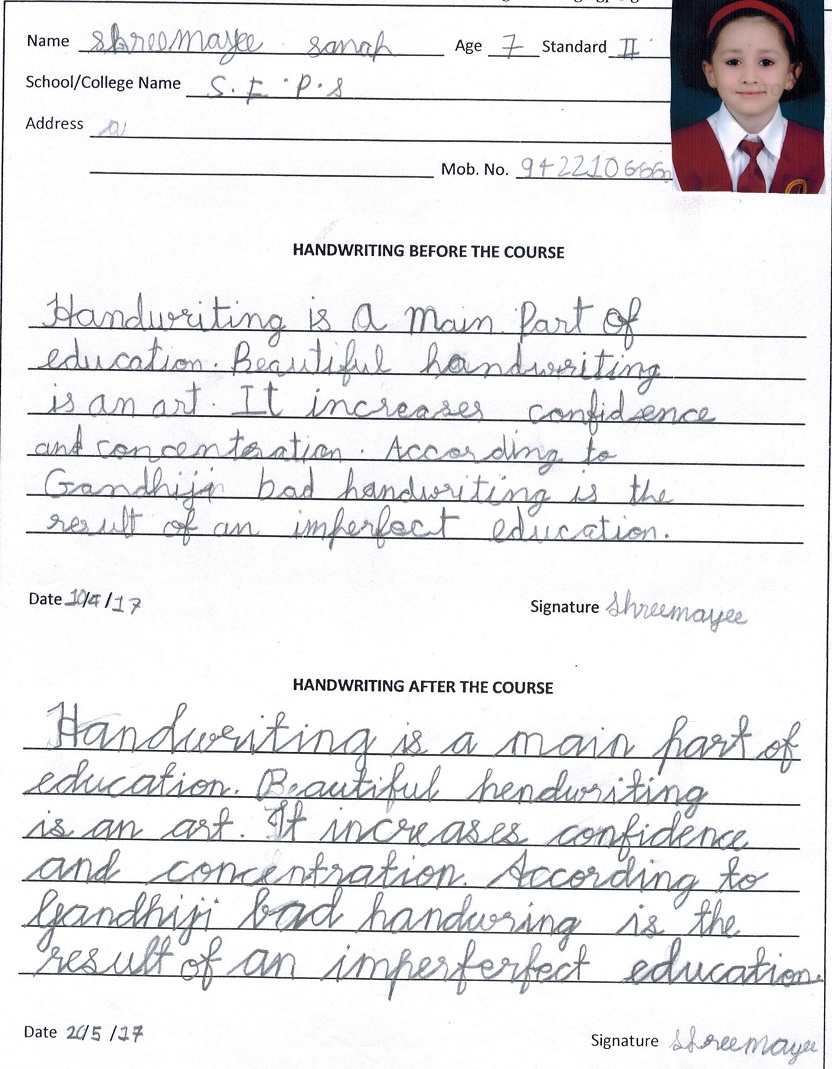 Name Shreemayee Sanap Age 7 Standard II
School/College Name S.E.P.S
Address
Mob. No. 942210666
HANDWRITING BEFORE THE COURSE
Handwriting is a main Part of
education. Beautiful handwriting
is an art. It increases confidence
and concentration. According to
Gandhiji bad handwriting is the
result of an imperfect education.
Date 10/4/17 Signature Shreemayee
HANDWRITING AFTER THE COURSE
Handwriting is a main part of
education. Beautiful hendwriting
is an art. It increases confidence
and concentration. According to
Gandhiji bad handwring is the
result of an imperferfect education.
Date 20/5/17 Signature Shreemayee